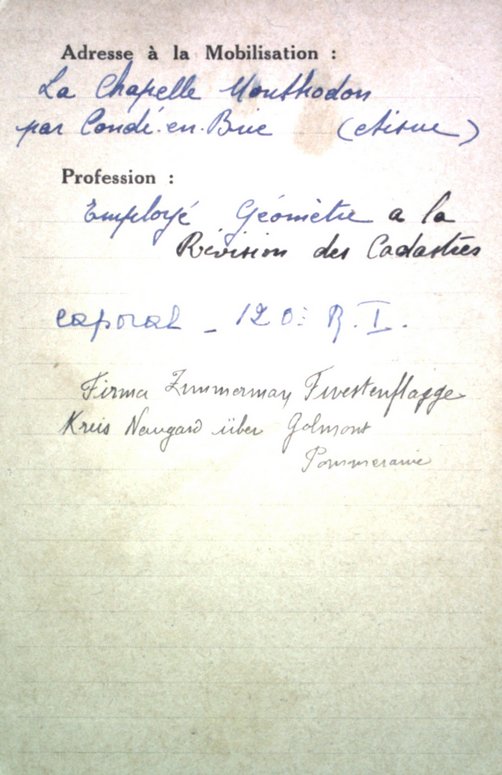 Adresse à la Mobilisation :
La Chapelle Monthodon
par Condé-en-Brie (Aisne)
Profession :
Employé Géomètre a la
Révision des Cadastres
caporal - 120e R. I.
Firma Zimmerman
Kreis Naugard über Golmont
Pommeranie